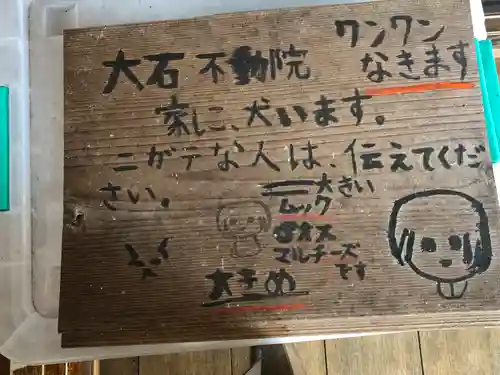 大石不動院
ワンワン
なきます
家に、犬います。
ニガテな人は、伝えてくだ
さい。
大きい
ムック
オス
マルチーズ
です
大きめ